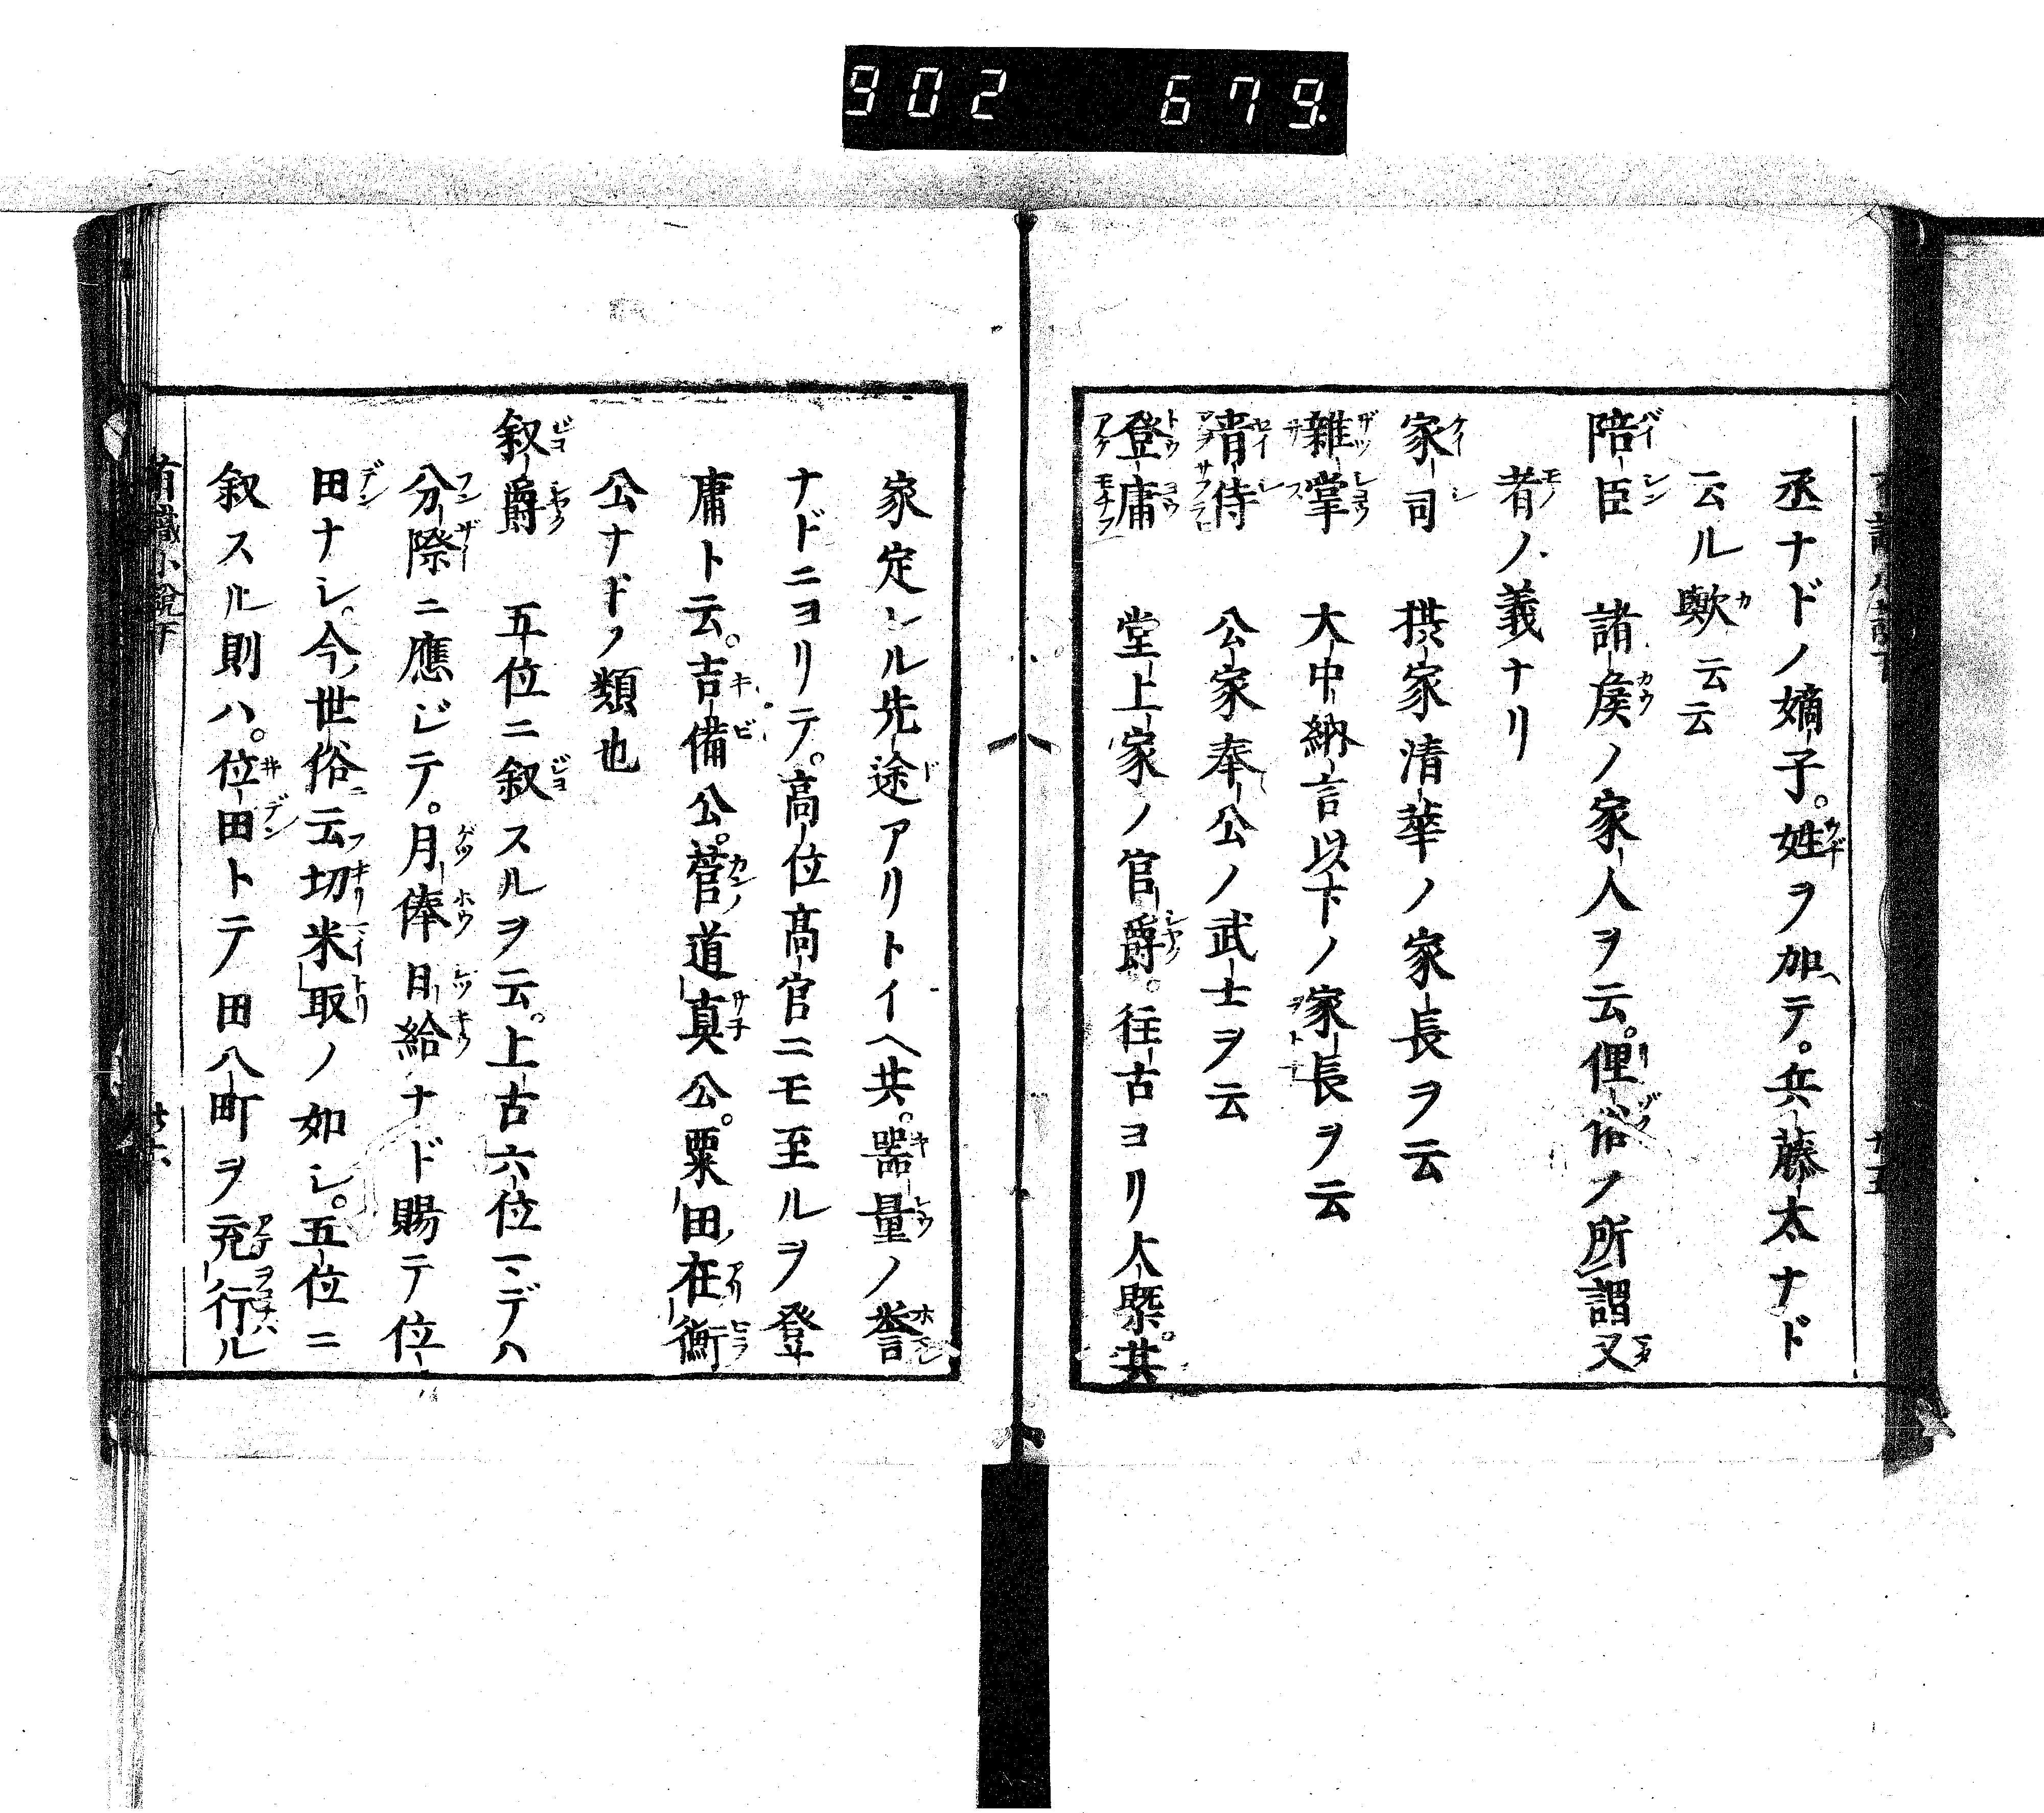 902 679
丞ナドノ嫡子。姓ヲ加テ。兵藤太ナド
云ル歟云云
陪臣 諸侯ノ家人ヲ云。俚俗ノ所謂又
者ノ義ナリ
家司 摂家清華ノ家長ヲ云
雜掌 大中納言以下ノ家長ヲ云
青侍 公家奉公ノ武士ヲ云
登庸 堂上家ノ官爵。往古ヨリ人槩。其
家定レル先途アリトイヘ共。器量ノ誉
ナドニヨリテ。高位髙官ニモ至ルヲ登
庸ト云。吉備公。菅道真公。粟田在衡
公ナドノ類也
叙爵 五位ニ叙スルヲ云。上古六位マデハ
分際ニ應ジテ。月俸日給ナド賜テ位
田ナシ。今世俗云切米取ノ如シ。五位ニ
叙スル則ハ。位田トテ田八町ヲ充行ル
有職小説下